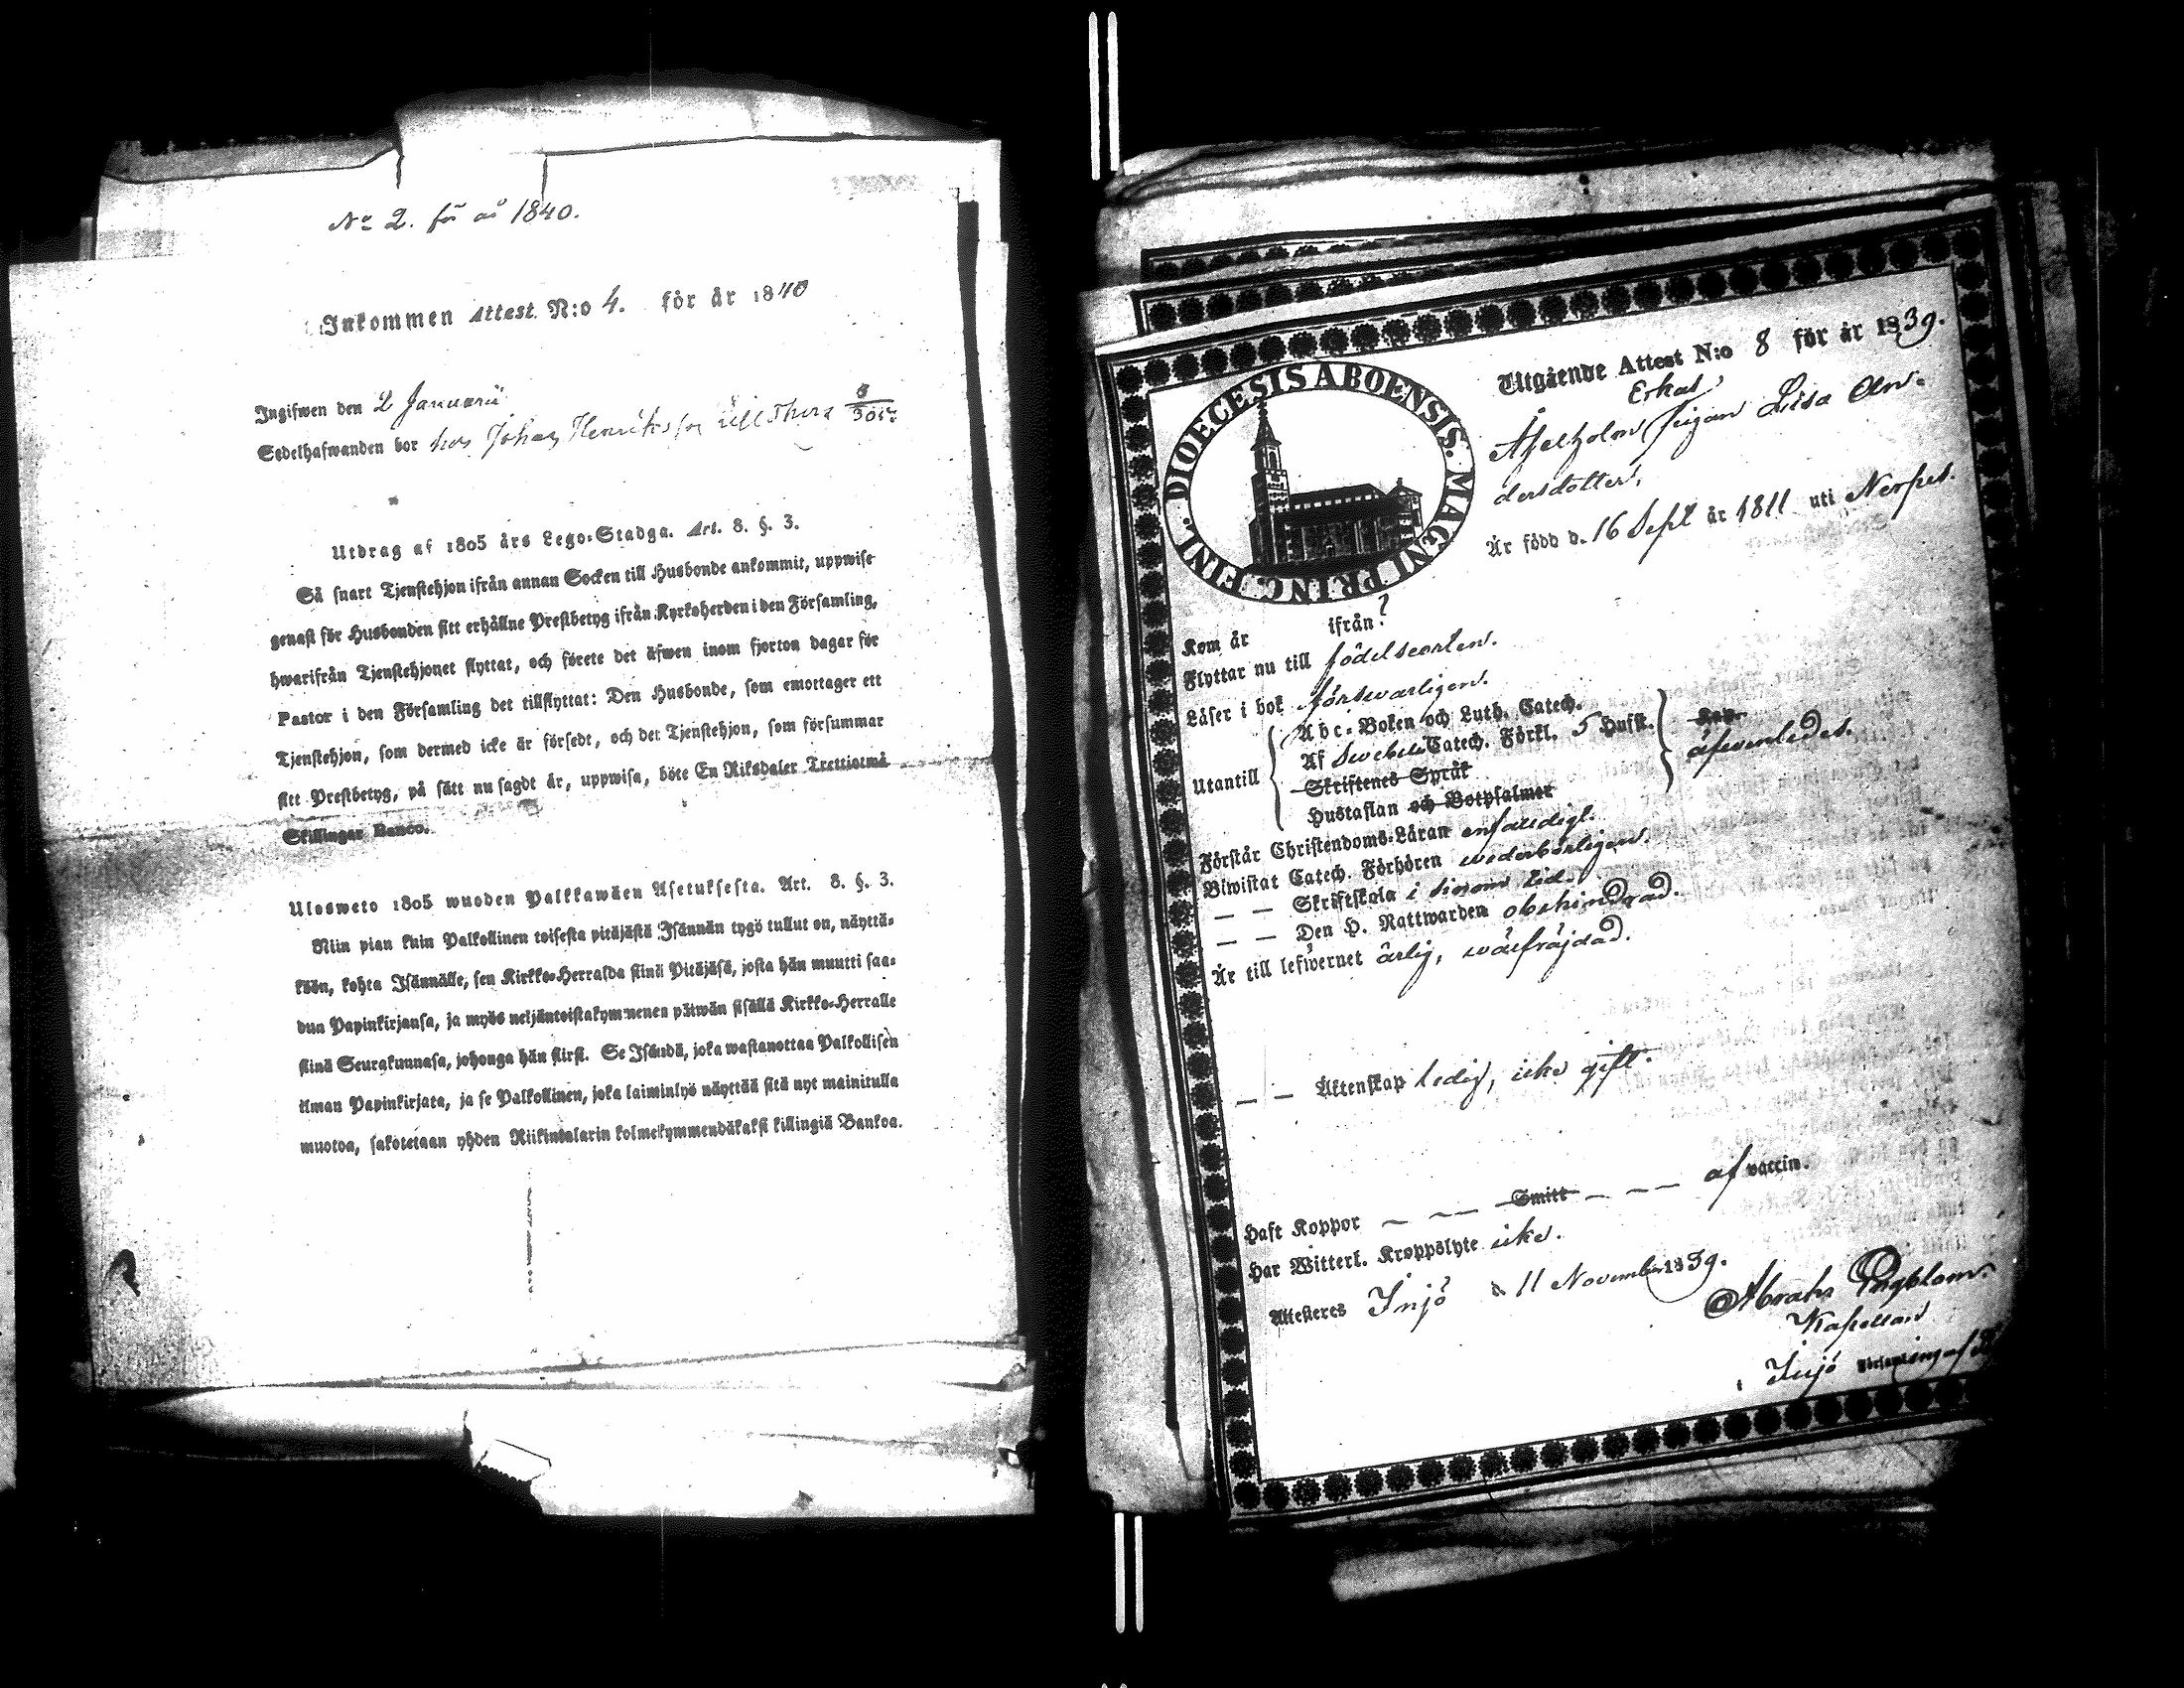 No 2. för år 1840.
Inkommen Attest. N:o 4. för år 1840
Ingifwen den 2 Januarii
Sedelhafwanden bor hos Johan Henriksson
Utdrag af 1805 års Lego-Stadga. Art. 8. §. 3.
Så snart Tjenstehjon ifrån annan Socken till Husbonde ankommit, uppwise
genast för Husbonden sitt erhållne Prestbetyg ifrån Kyrkoherden i den Församling,
hwarifrån Tjenstehjonet flyttat, och förete det äfwen inom fjorton dagar för
Pastor i den Församling det tillflyttat: Den Husbonde, som emottager ett
Tjenstehjon, som dermed icke är försedt, och det Tjenstehjon, som försummar
sitt Prestbetyg, på sätt nu sagdt är, uppwisa, böte En Riksdaler Trettiotwå
Skillingar Banco.
Ulosweto 1805 wuoden Palkkawäen Asetuksesta. Art. 8. §. 3.
Niin pian kuin Palkollinen toisesta pitäjästä Isännän tygö tullut on, näyttä-
köön, kohta Isännälle, sen Kirkko-Herralda siinä Pitäjäsä, josta hän muutti saa-
dun Papinkirjansa, ja myös neljäntoistakymmenen päiwän sisällä Kirkko-Herralle
siinä Seurakunnasa, johonga hän siirsi. Se Isändä, joka wastanottaa Palkollisen
ilman Papinkirjata, ja se Palkollinen, joka laiminlyö näyttää sitä nyt mainitulla
muotoa, sakotetaan yhden Riikintalarin kolmekymmendäkaksi killingiä Bankoa.
DIOECESIS ABOENSIS. MAGNI PRINC. FINL.
Utgående Attest N:o 8 för år 1839.
Erkas
pigan Lisa An-
dersdotter,
Är född d. 16 Sept år 1811 uti Nerpes.
Kom år ifrån ?
Flyttar nu till födelseorten.
Läser i bok förswarligen.
Utantill
Abc-Boken och Luth. Catech.
Af Swebelii Catech. Förkl. 5 Hufst.
Skriftenes Språk
Hustaflan och Botpsalmer
äfwenledes.
Förstår Christendoms-Läran enfaldigt.
Biwistat Catech. Förhören wederbörligen.
— — Skriftskola i sinom tid.
— — Den H. Nattwarden obehindrad.
Är till lefwernet ärlig, wälfräjdad.
— — Äktenskap ledig, icke gift.
Haft Koppor — — — Smitt — — — af vaccin.
Har Witterl. Kroppslyte icke.
Attesteres Insjö d. 11 November 1839.
Abrah Engblom.
Kapellan